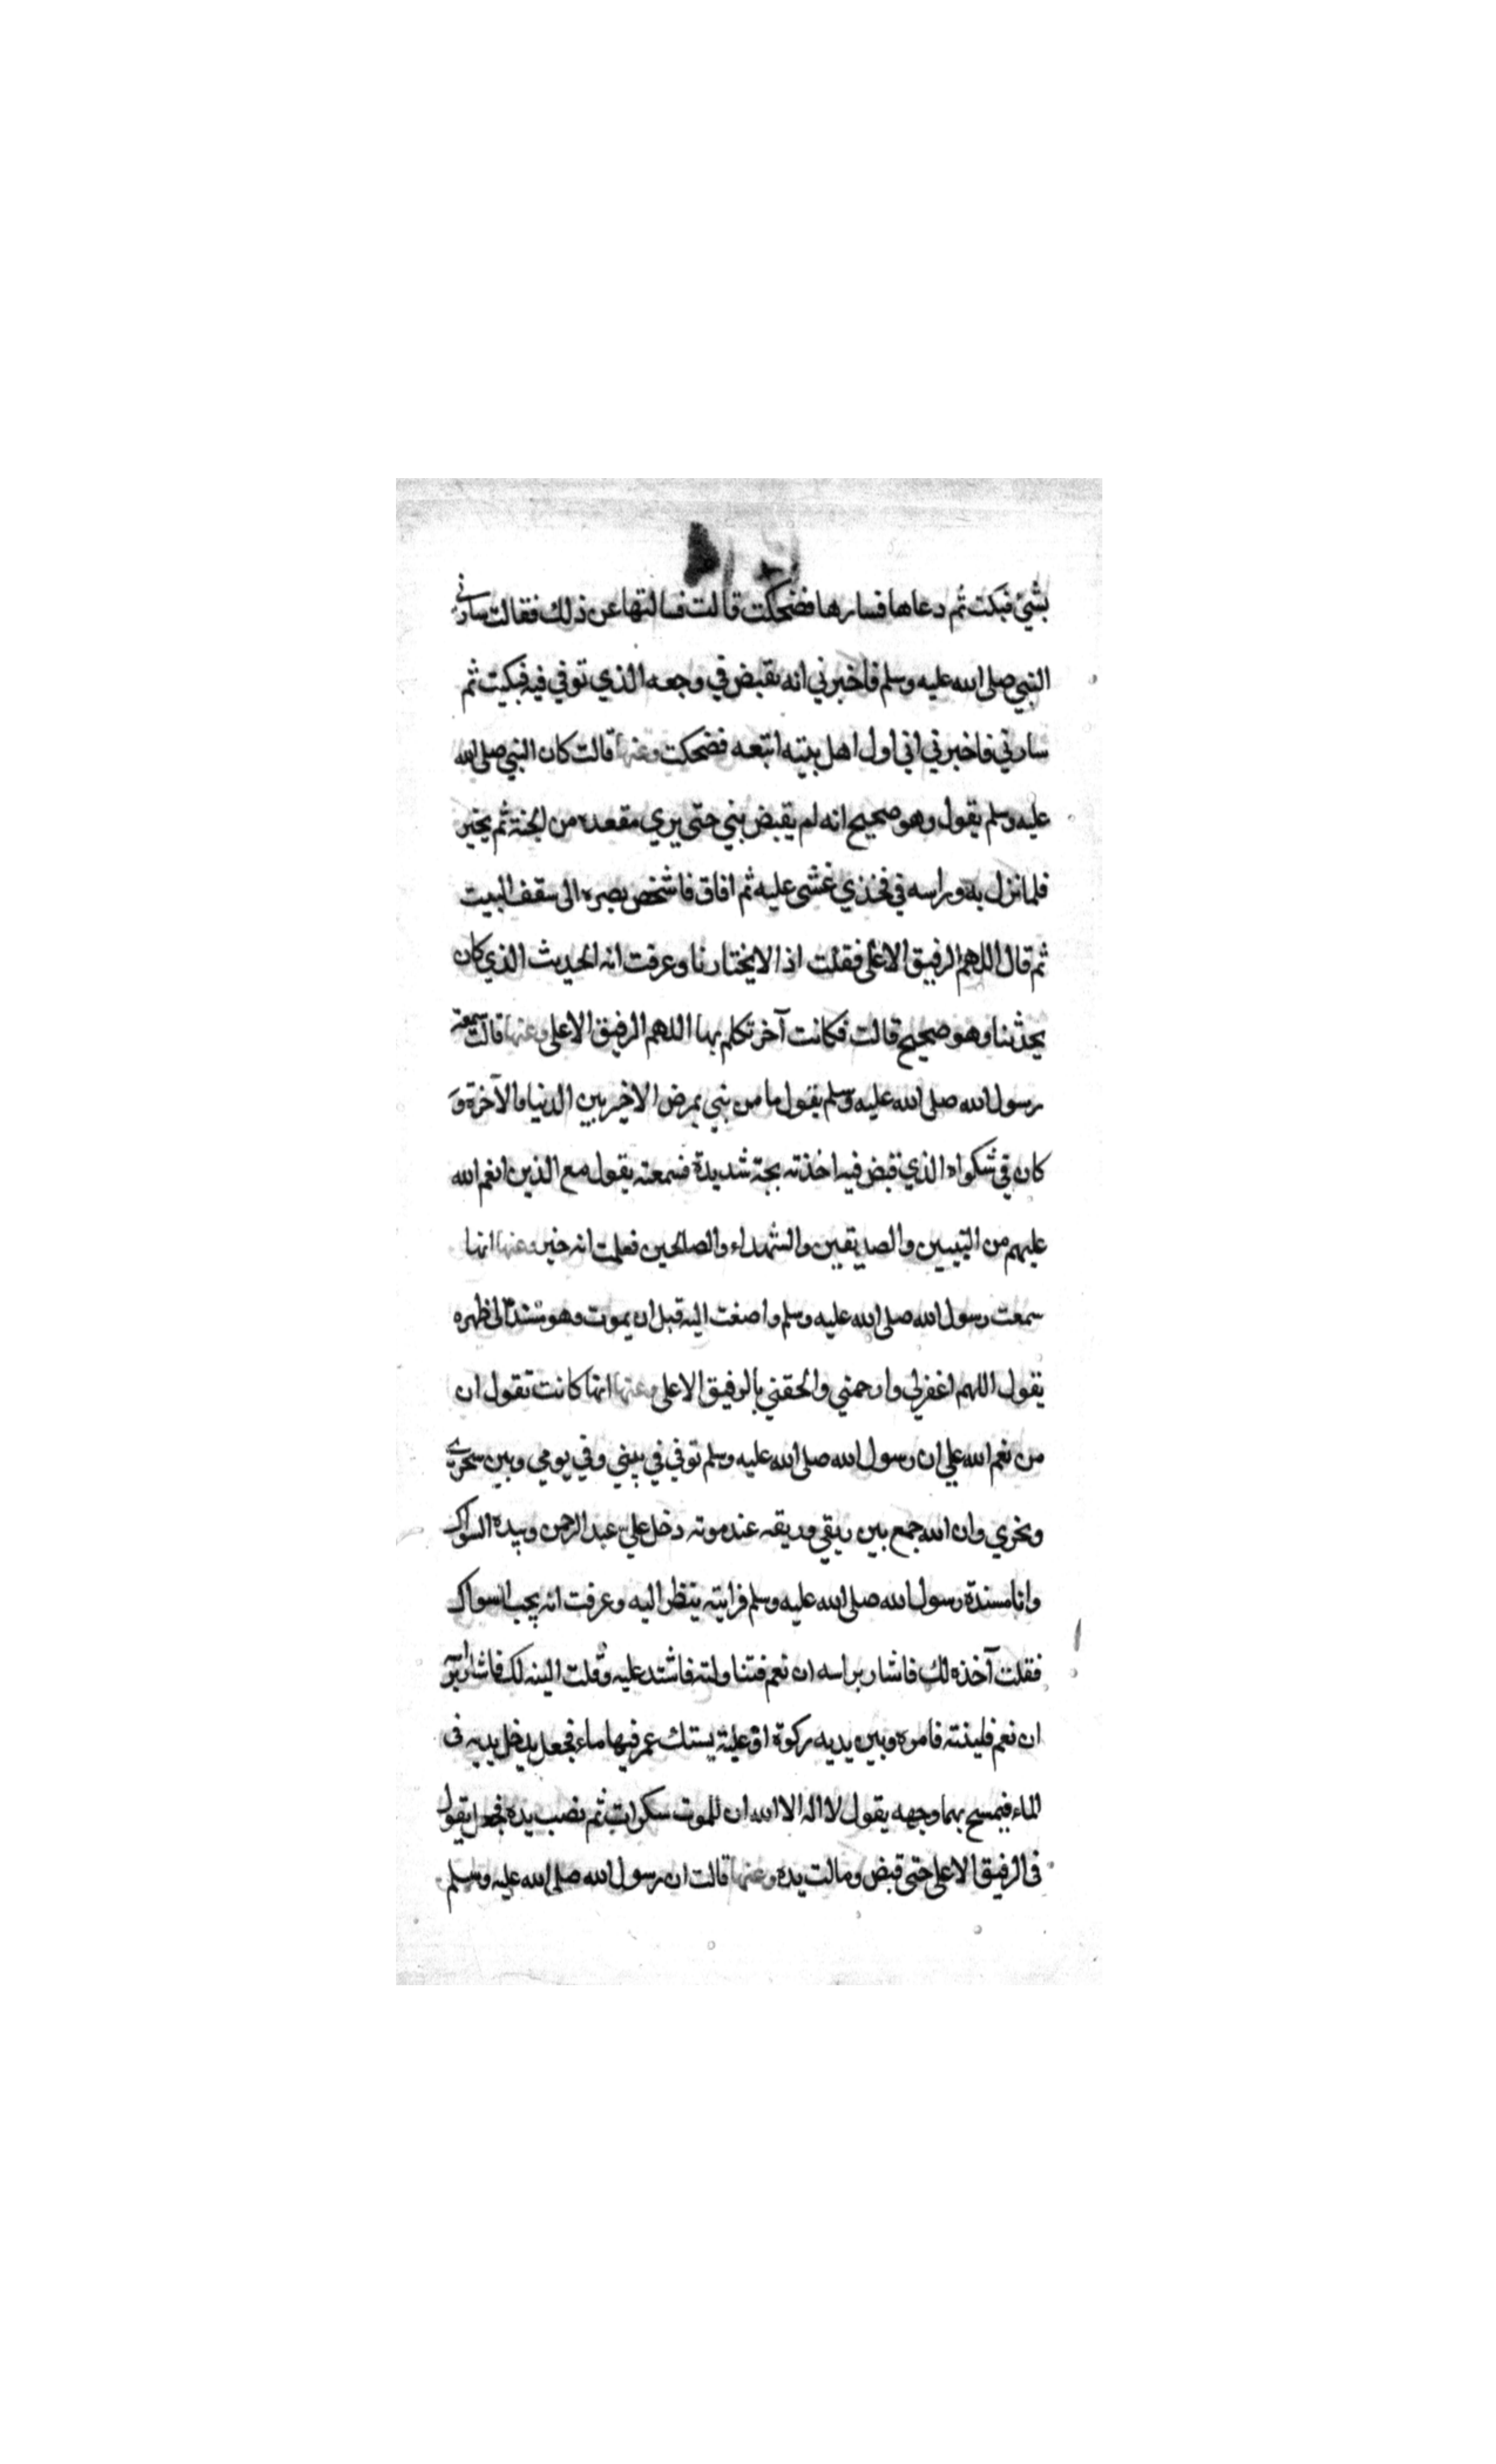 بشيئ فبكت ثم دعاها فسارها فضحكت قالت فسالتها عن ذلك فقالت سارني
النبي صلى الله عليه وسلم فاخبرني انه يقبض في وجعه الذي توفي فيه فبكيت ثم
سارني فاخبرني اني اول اهل بيته اتبعه فضحكت وعنها قالت كان النبي صلى الله
عليه وسلم يقول وهو صحيح انه لم يقبض نبي حتى يري مقعده من الجنة ثم يخير
فلما نزل به وراسه في فخذي غشى عليه ثم افاق فاشخص بصره الى سقف البيت
ثم قال اللهم الرفيق الاعلى فقلت اذا لا يختارنا وعرفت انه الحديث الذي كان
يحدثنا وهو صحيح قالت فكانت آخر تكلم بها اللهم الرفيق الاعلى وعنها قالت سمعت
رسول الله صلى الله عليه وسلم يقول ما من نبي يمرض الا خير بين الدنيا والآخرة و
كان في شكواه الذي قبض فيه اخذته بحة شديدة فسمعته يقول مع الذين انعم الله
عليهم من النبيين والصديقين والشهداء والصالحين فعلمت انه خير وعنها انها
سمعت رسول الله صلى الله عليه وسلم واصغت اليه قبل ان يموت وهو مسند الى ظهره
يقول اللهم اغفرلي وارحمني والحقني بالرفيق الاعلى وعنها انها كانت تقول ان
من نعم الله علي ان رسول الله صلى الله عليه وسلم توفي في بيتي وفي يومي وبين سحري
ونحري وان الله جمع بين ريقي وريقه عند موته دخل علي عبد الرحمن وبيده السواك
وانا مسندة رسول الله صلى الله عليه وسلم فرايته ينظر اليه وعرفت انه يحب السواك
فقلت آخذه لك فاشار براسه ان نعم فتناولته فاشتد عليه وقلت الينه لك فاشار براسه
ان نعم فلينته فامره وبين يديه ركوة او علبة يشك عمر فيها ماء فجعل يدخل يديه فى
الماء فيمسح بهما وجهه يقول لا اله الا الله ان للموت سكرات ثم نصب يده فجعل يقول
فى الرفيق الاعلى حتى قبض ومالت يده وعنها قالت ان رسول الله صلى الله عليه وسلم